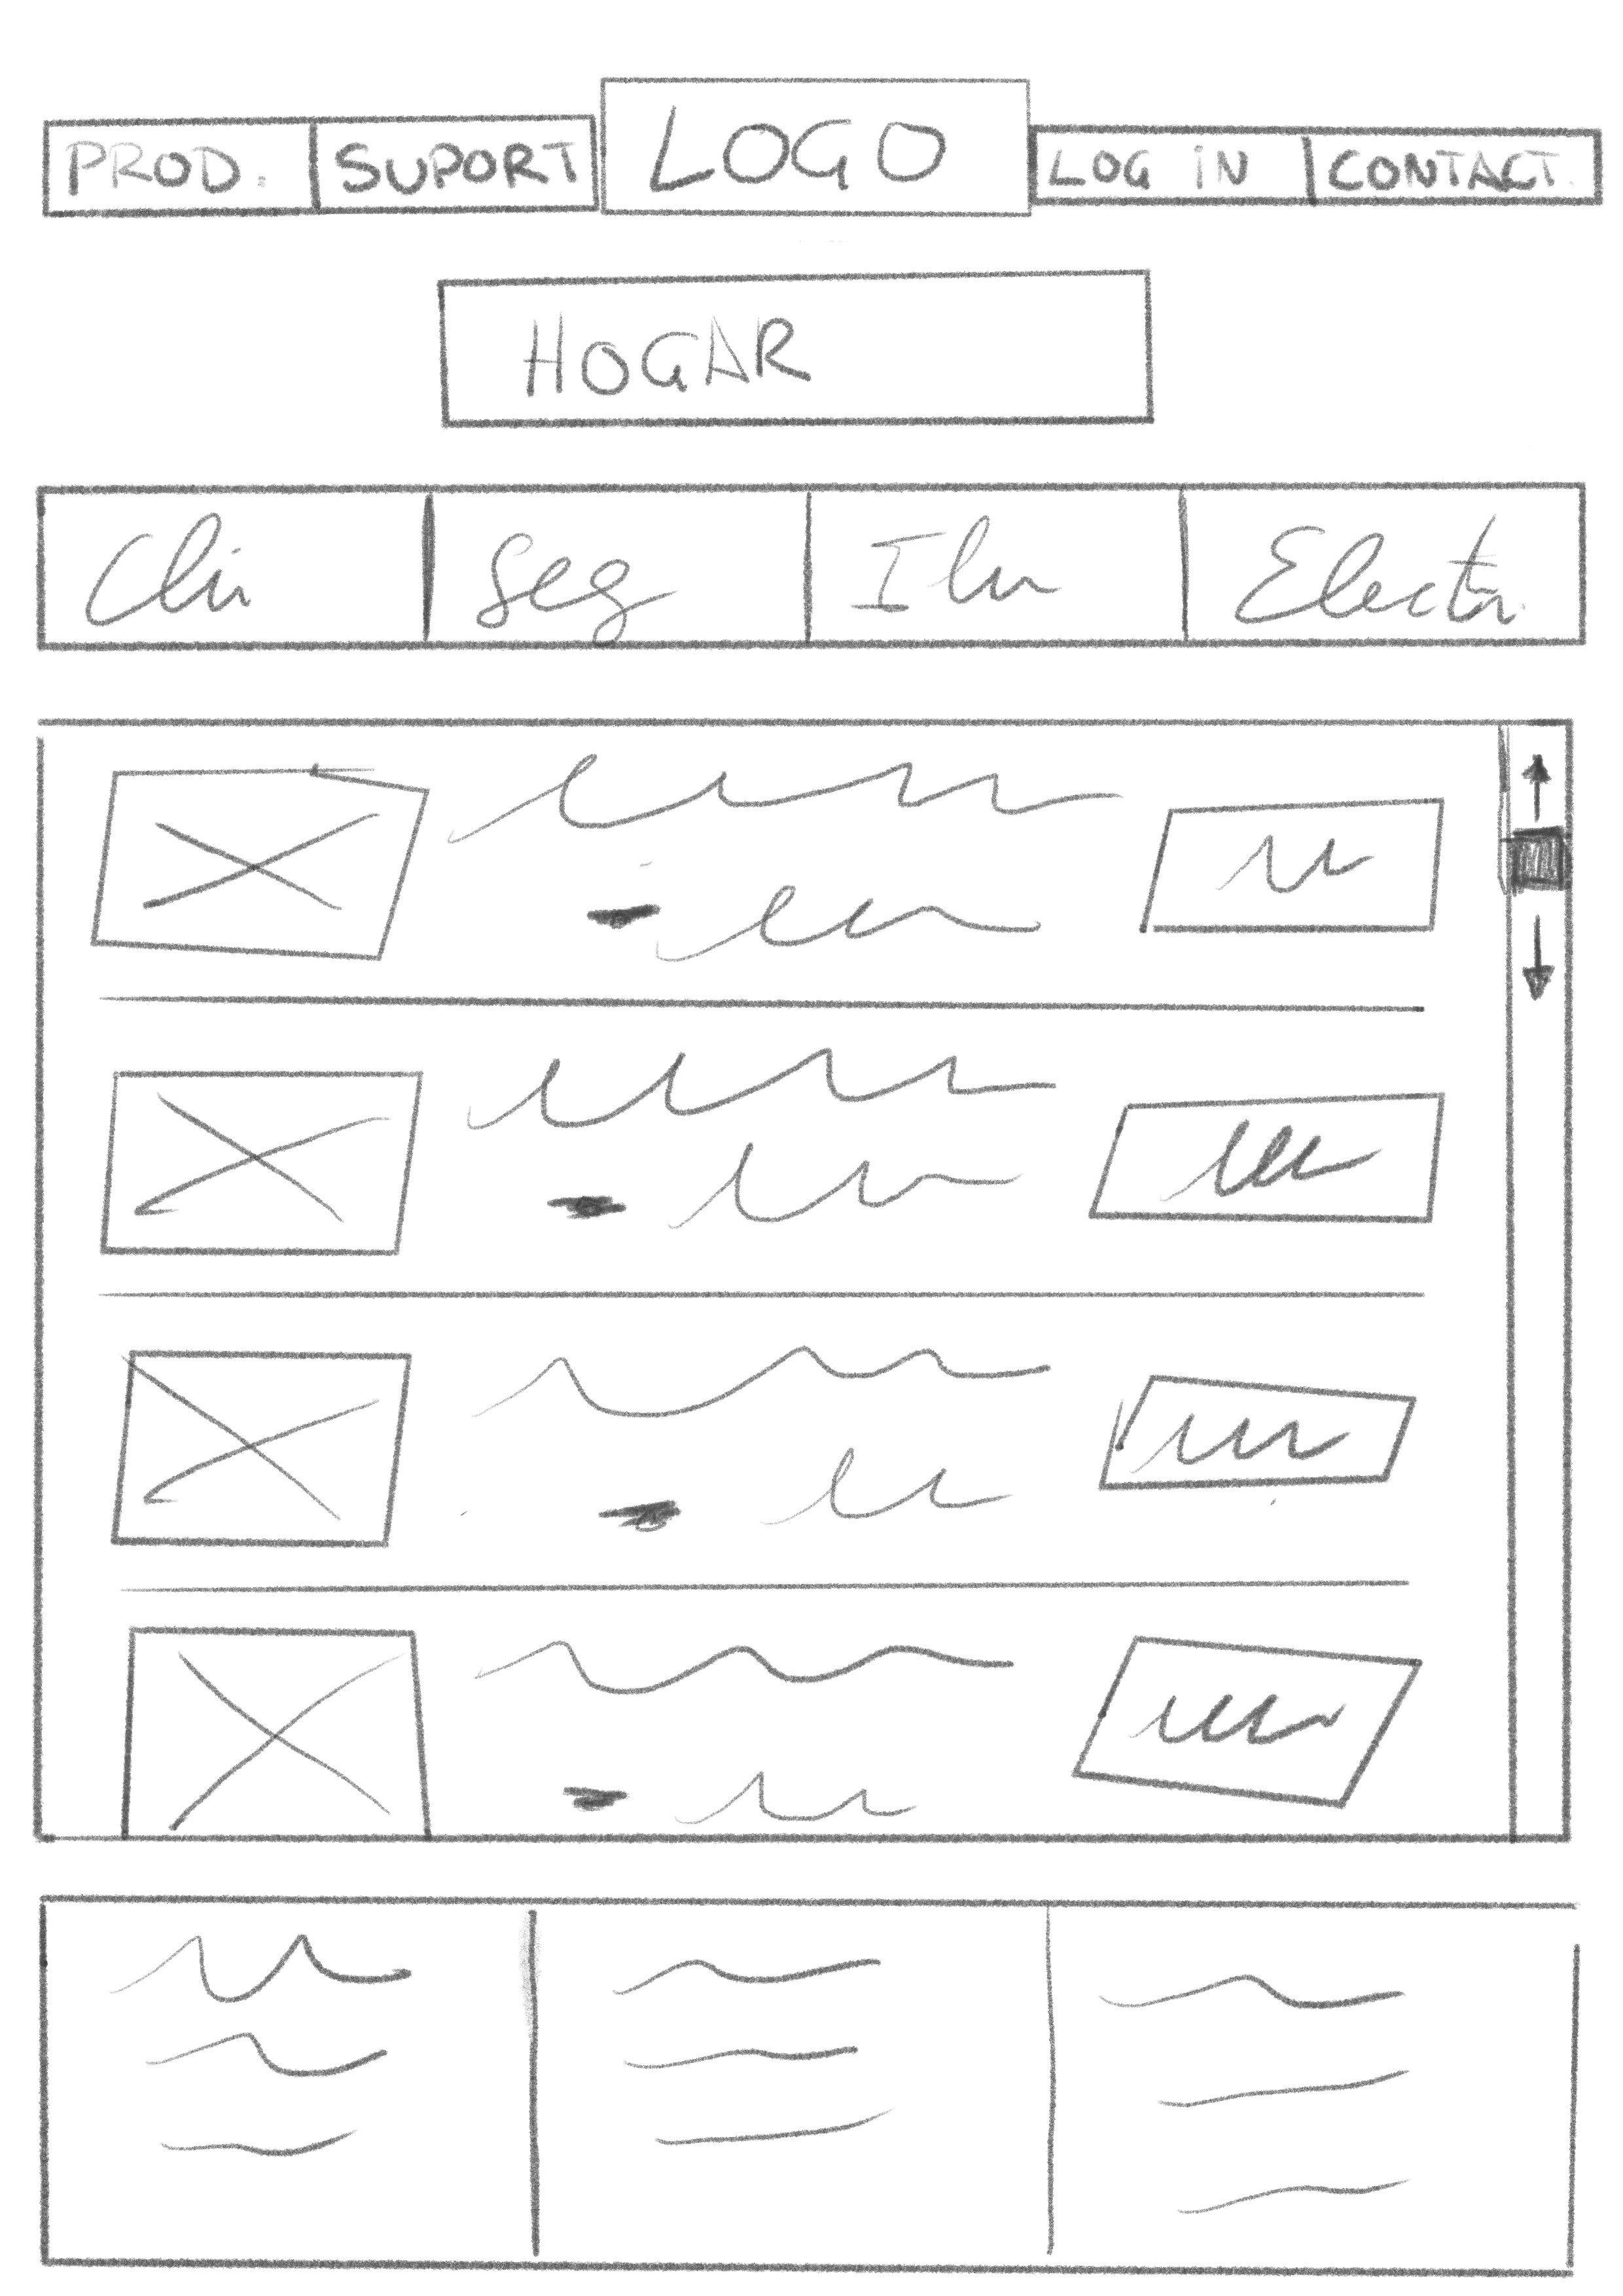 PROD. SUPORT LOGO LOG IN CONTACT.
HOGAR
Cli Seg Ilu Electr.